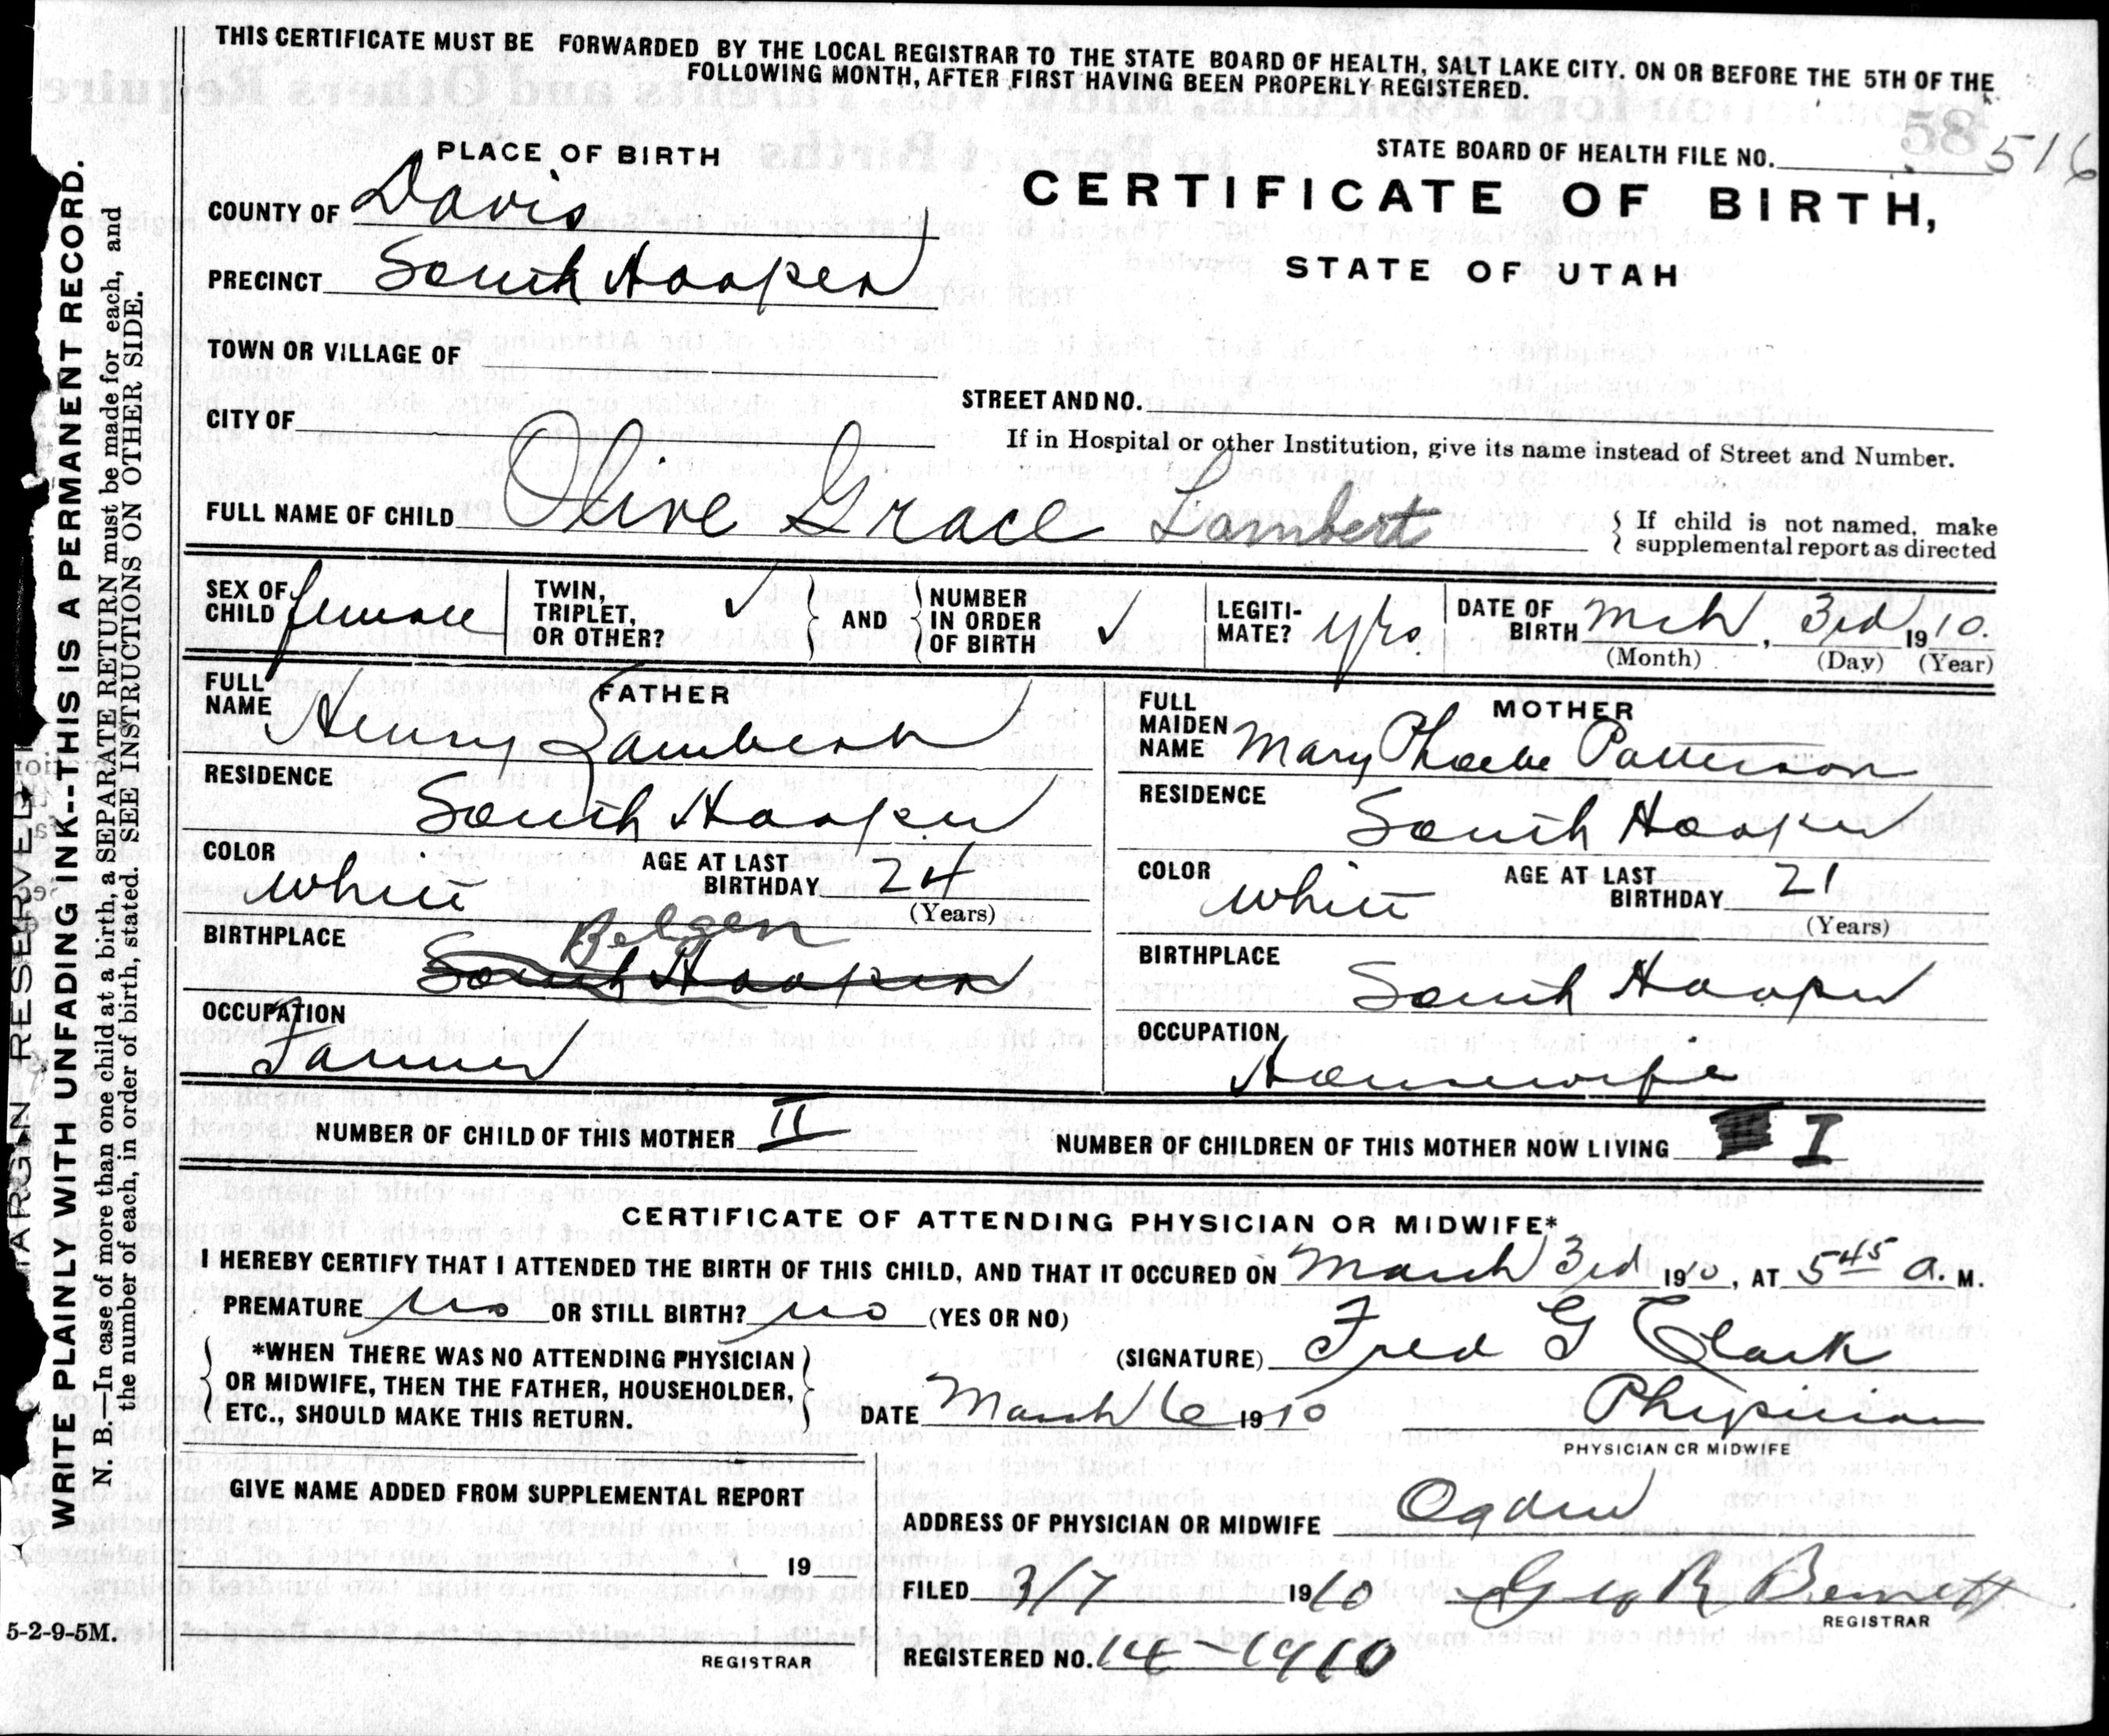 THIS CERTIFICATE MUST BE FORWARDED BY THE LOCAL REGISTRAR TO THE STATE BOARD OF HEALTH, SALT LAKE CITY. ON OR BEFORE THE 5TH OF THE
FOLLOWING MONTH, AFTER FIRST HAVING BEEN PROPERLY REGISTERED.
PLACE OF BIRTH
STATE BOARD OF HEALTH FILE NO. 58 516
COUNTY OF Davis
CERTIFICATE OF BIRTH,
PRECINCT South Hooper
STATE OF UTAH
TOWN OR VILLAGE OF
STREET AND NO.
CITY OF
If in Hospital or other Institution, give its name instead of Street and Number.
FULL NAME OF CHILD Olive Grace Lambert
If child is not named, make
supplemental report as directed
SEX OF CHILD female
TWIN, TRIPLET, OR OTHER? ✓
AND
NUMBER IN ORDER OF BIRTH ✓
LEGITI-MATE? yes.
DATE OF BIRTH Mch, 3rd 1910.
(Month) (Day) (Year)
FATHER
FULL NAME Henry Lambert
RESIDENCE
South Hooper
COLOR White
AGE AT LAST BIRTHDAY 24
(Years)
BIRTHPLACE
South Hooper
OCCUPATION
Farmer
MOTHER
FULL MAIDEN NAME Mary Phoebe Patterson
RESIDENCE
South Hooper
COLOR White
AGE AT LAST BIRTHDAY 21
(Years)
BIRTHPLACE
South Hooper
OCCUPATION
Housewife
NUMBER OF CHILD OF THIS MOTHER II
NUMBER OF CHILDREN OF THIS MOTHER NOW LIVING I
CERTIFICATE OF ATTENDING PHYSICIAN OR MIDWIFE*
I HEREBY CERTIFY THAT I ATTENDED THE BIRTH OF THIS CHILD, AND THAT IT OCCURED ON March 3rd 1910, AT 5 45 A. M.
PREMATURE no OR STILL BIRTH? no (YES OR NO)
*WHEN THERE WAS NO ATTENDING PHYSICIAN
OR MIDWIFE, THEN THE FATHER, HOUSEHOLDER,
ETC., SHOULD MAKE THIS RETURN.
(SIGNATURE) Fred G Clark
DATE March 6 1910
Physician
PHYSICIAN OR MIDWIFE
GIVE NAME ADDED FROM SUPPLEMENTAL REPORT
19
REGISTRAR
ADDRESS OF PHYSICIAN OR MIDWIFE Ogden
FILED 3/7 1910 Geo R Bennett
REGISTRAR
REGISTERED NO. 14-1910
MARGIN RESERVED
WRITE PLAINLY WITH UNFADING INK--THIS IS A PERMANENT RECORD.
N. B.—In case of more than one child at a birth, a SEPARATE RETURN must be made for each, and
the number of each, in order of birth, stated. SEE INSTRUCTIONS ON OTHER SIDE.
5-2-9-5M.